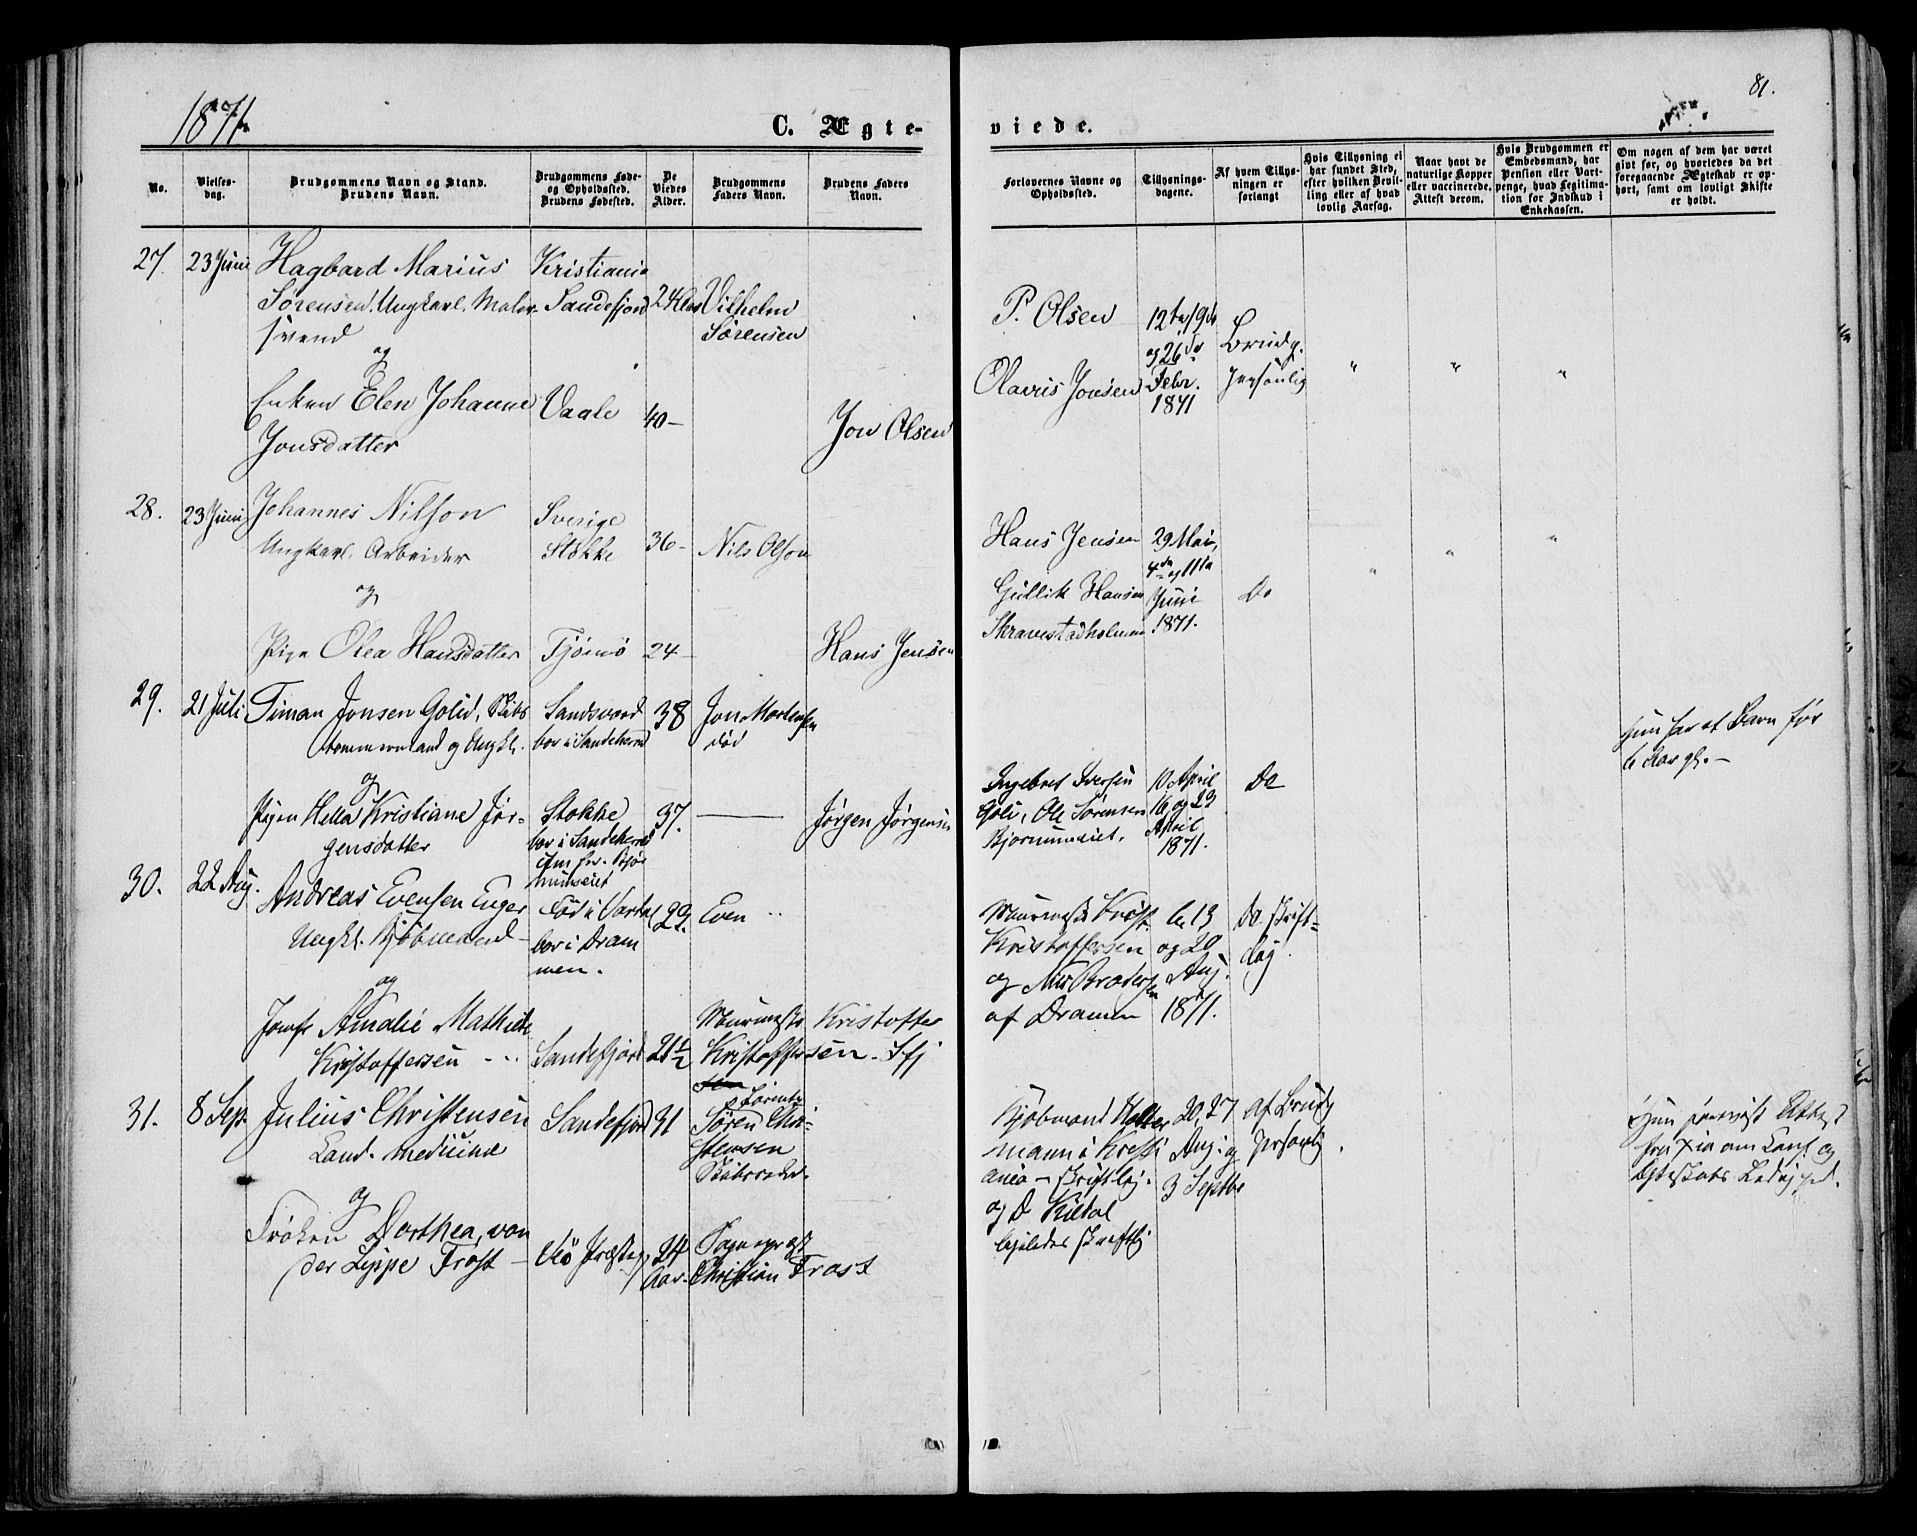 1871.
C. Ægte-
viede.
81.
No.
Vielses-
dag.
Brudgommens Navn og Stand.
Brudens Navn.
Brudgommens Føde-
og Opholdssted.
Brudens Fødested.
De
Viedes
Alder.
Brudgommens
Faders Navn.
Brudens Faders
Navn.
Forlovernes Navne og
Opholdssted.
Tillysnings-
dagene.
Af hvem Tillys-
ningen er
forlangt
Hvis Tillysning ei
har fundet Sted,
efter hvilken Bevil-
ling eller af hvad
lovlig Aarsag.
Naar havt de
naturlige Kopper
eller vaccinerede.
Attest derom.
Hvis Brudgommen er
Embedsmand, har
Pension eller Vart-
penge, hvad Legitima-
tion for Indskud i
Enkekassen.
Om nogen af dem har været
givt før, og hvorledes da det
foregaaende Ægteskab er op-
hørt, samt om lovligt Skifte
er holdt.
27.
23 Juni
Hagbard Marius
Sørensen. Ungkarl. Maler-
svend
og
Enken Elen Johanne
Jonsdatter
Kristiania
Sandefjord
Vaale
24
40 -
Vilhelm
Sørensen
Jon Olsen
P. Olsen
Olavus Jonsen
12te 19de
og 26de
Febr.
1871
Brudg.
personlig
" " "
28.
23 Juni
Johannes Nilson
Ungkarl. Arbeider
og
Pige Olea Hansdatter
Sverige
Stokke
Tjømø
36 -
24 -
Nils Olson
Hans Jensen
Hans Jensen
Gullik Hansen
29 Mai,
4de og 11te
Juni
1871.
Do
" " "
29.
21 Juli
Timan Jonsen Golid,
tømmermand og Ungkl.
og
Pigen Hella Kristiane Jør-
gensdatter
Sandsværd
bor i Sandeherred
Stokke
bor i Sandeherred
38
37.
Jon Mortensen
død
Jørgen Jørgensen
Ingebret Iversen
Goli, Ole Sørensen
10 April
16 og 23
April
1871.
Do
Hun har et Barn før
6 Aar gl. -
30.
22 Aug.
Andreas Evensen Enger
Ungkl. Kjøbmand -
og
Jomfr Amalie Mathilde
Kristoffersen
Fød i Vardal
bor i Dram
men.
Sandefjord
29.
21 1/2
Even "
Muurmester Kristoffer
Kristoffersen. Sfj
Muurmester Kristof.
Kristoffersen
og Nils Brodersen
af Dramen
6. 13
og 20
Aug.
1871.
Do skrift-
lig
31.
8 Sep.
Julius Christensen
Cand. medicinæ
og
Frøken Dorthea, von
der Lippe Frost -
Sandefjord
31
24
Aar.
Søren Chri-
stensen
Skibsreder.
Sogneprest
Christian Frost
Kjøbmand Holter
mann i Kristi
ania - skriftlig.
og D Kildal
ligeledes skriftlig
20, 27
Aug. og
3 Septbr
af Brudg
personlig.